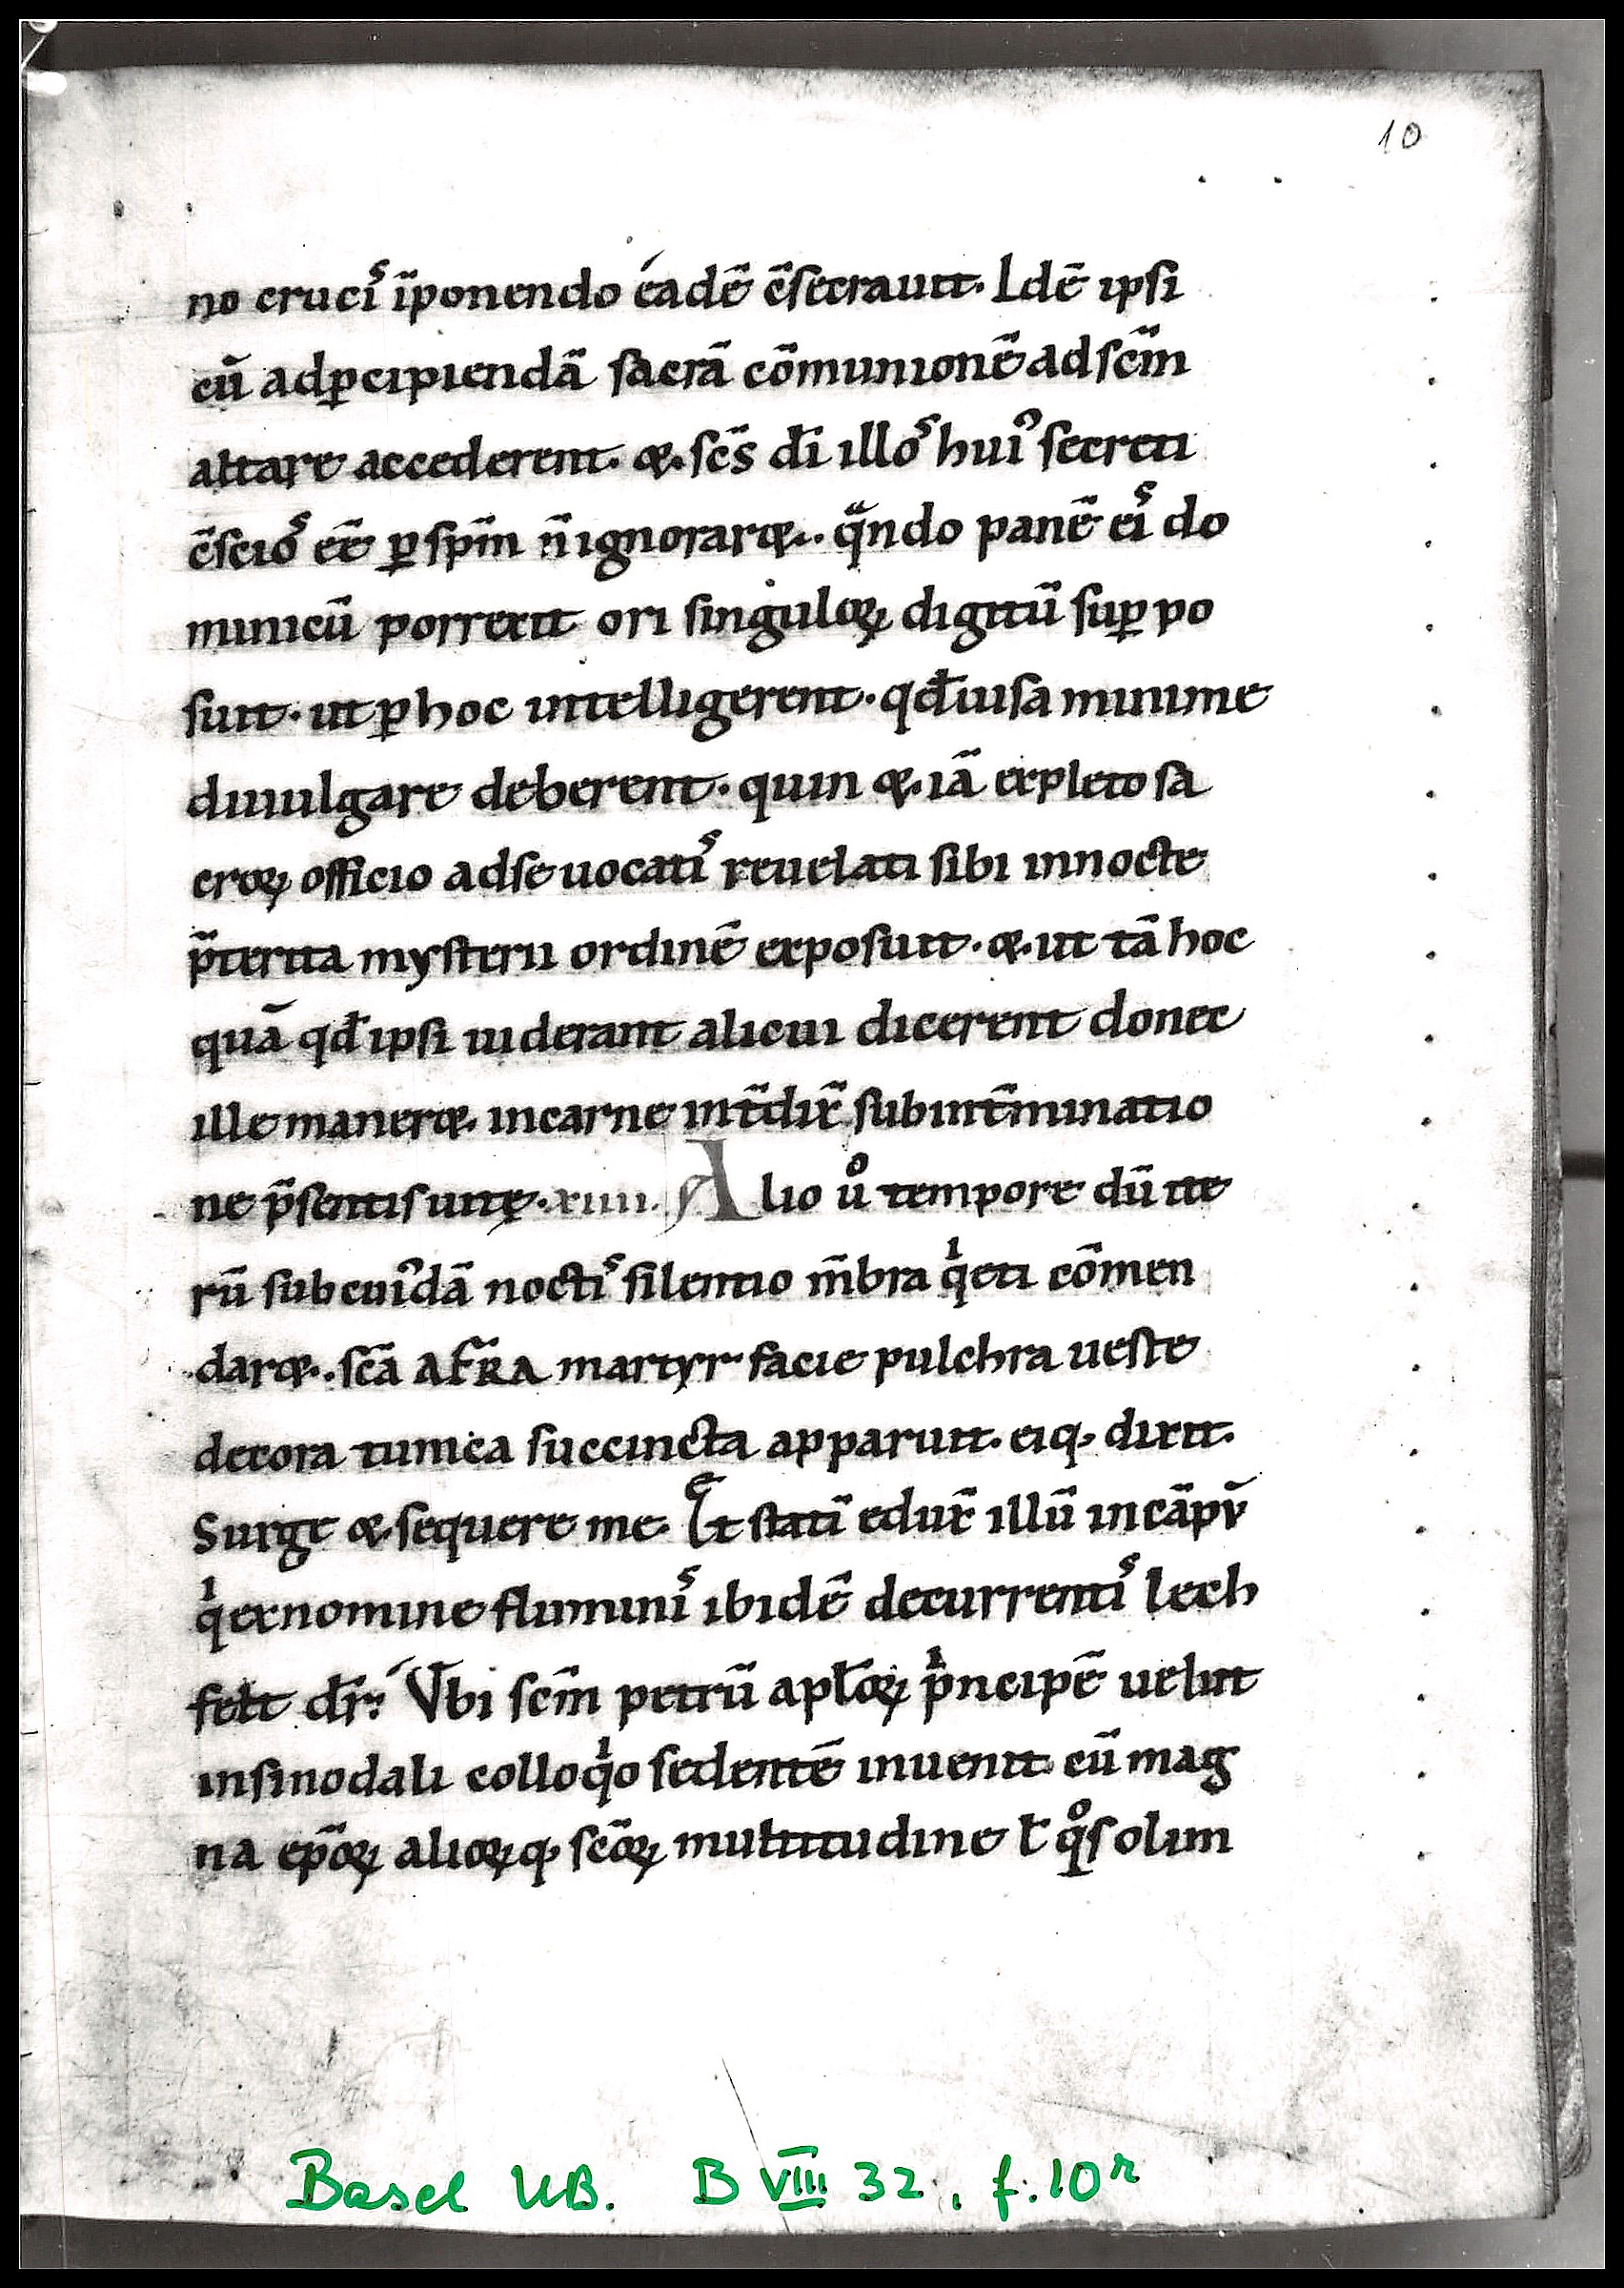 10
no cruciˢ īponendo éadē c̄secrauit. Idē ipsi
cū adp̱cipiendā sacrā cōmunionē ad scm̄
altare accederent. &. scs̄ dī illoˢ hui⁹ secreti
c̄scioˢ eē̄ p̱ spm̄ n̄ ignorar&.. qͣndo panē eiˢ do
minicū porrexit ori singuloꝝ digitū sup̱ po
suit. ut p̱ hoc intelligerent. qđ uisa minime
diuulgare deberent. quin &. iā expleto sa
croꝝ officio ad se uocatiˢ reuelati sibi in nocte
p̄terita mysterii ordinē exposuit. &. ut tā hoc
quā qđ ipsi uiderant alicui dicerent donec
ille maner&. in carne int̄dix̄ sub int̄minatio
ne p̄sentis uitę. xiiii. Alio uº tempore dū ite
rū sub cui⁹dā noctiˢ silentio m̄bra qⁱeti cōmen
dar&.. scā AFRA martyr facie pulchra ueste
decora tunica succincta apparuit. eiq; dixit.
Surge & sequere me. Et statī edux̄ illū in cāpū
qⁱ ex nomine fluminiˢ ibidē decurrentiˢ lech
felt dr̄. Vbi scm̄ petrū apl̄oꝝ pⁱncipē uelut
in sinodali colloqⁱo sedentē inuenit cū mag
na ep̄oꝝ alioꝝq; scōꝝ multitudine ł qºs olim
Basel UB. B VIII 32, f. 10r